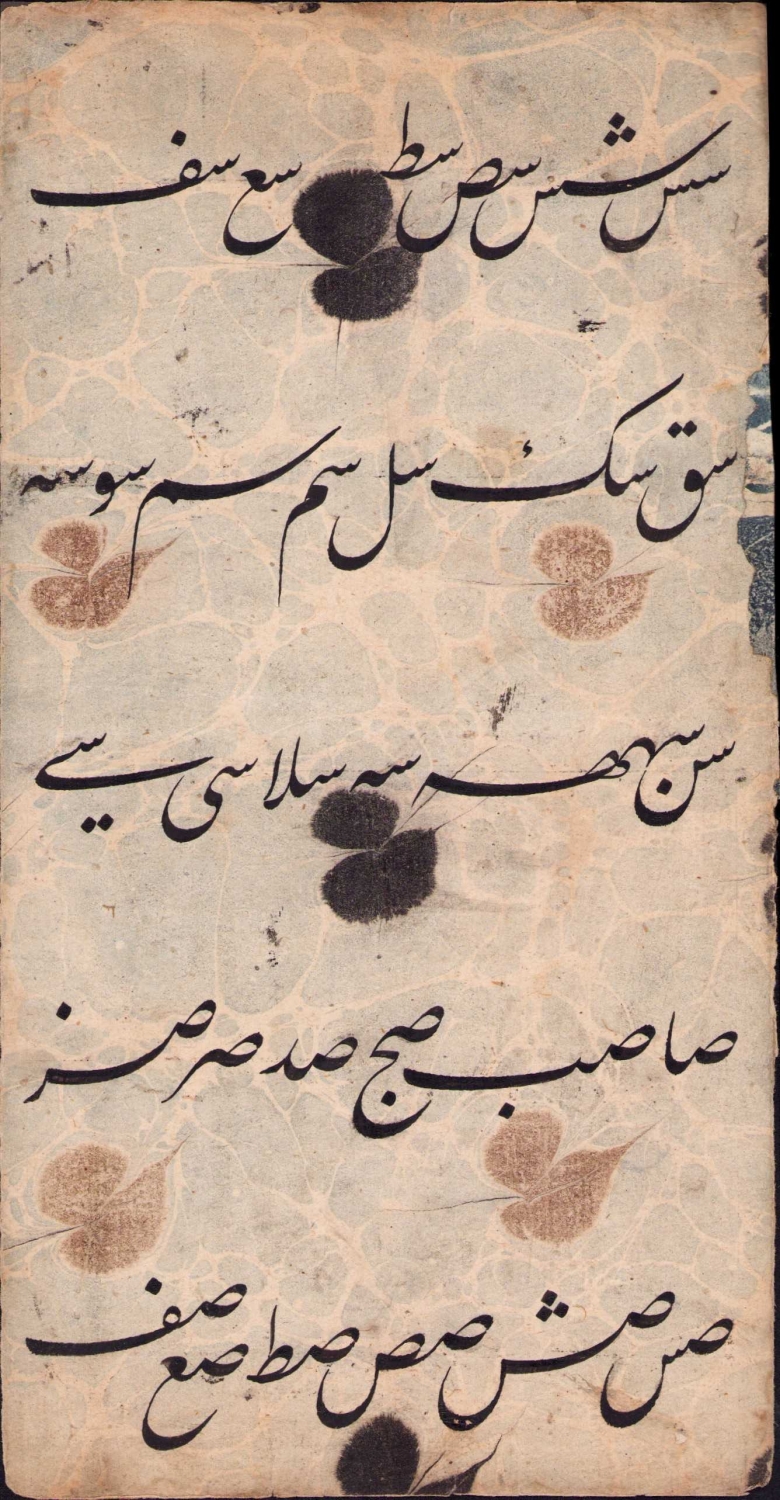 سس سش سص سط سع سف
سق سک سل سم سم سو سه
سن سهه سه سلا سی سے
صا صب صج صد صر صز
صس صش صص صط صع صف